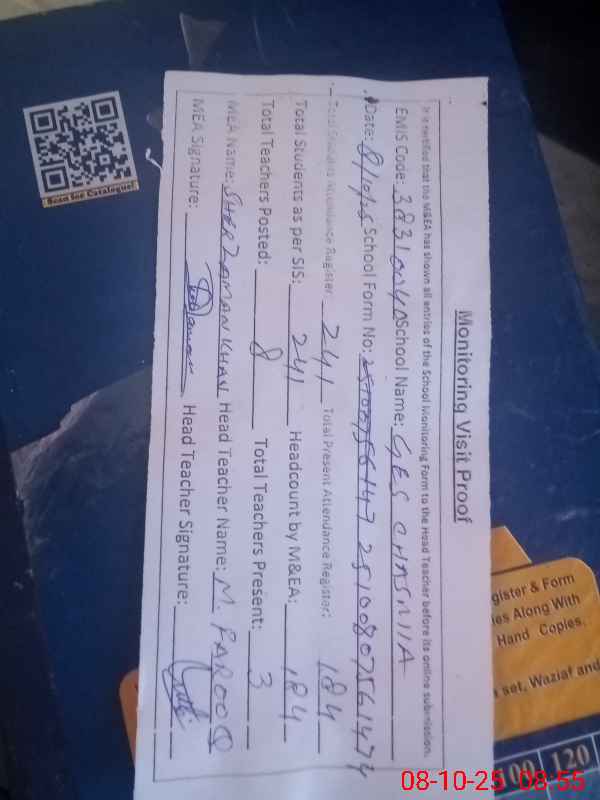 Monitoring Visit Proof
It is certified that the M&EA has shown all entries of the School Monitoring Form to the Head Teacher before its online submission.
EMIS Code: 38310040 School Name: GES CHASMIIA
Date: 8/10/25 School Form No: 25100807561474
Total Students Attendance Register 241 Total Present Attendance Register: 184
Total Students as per SIS: 241 Headcount by M&EA: 184
Total Teachers Posted: 8 Total Teachers Present: 3
MEA Name: SHER ZAMAN KHAN Head Teacher Name: M. FAROOQ
MEA Signature: Head Teacher Signature:
Scan for Catalogue!
gister & Form
es Along With
Hand Copies.
set, Waziaf and
100 120
08-10-25 08:55